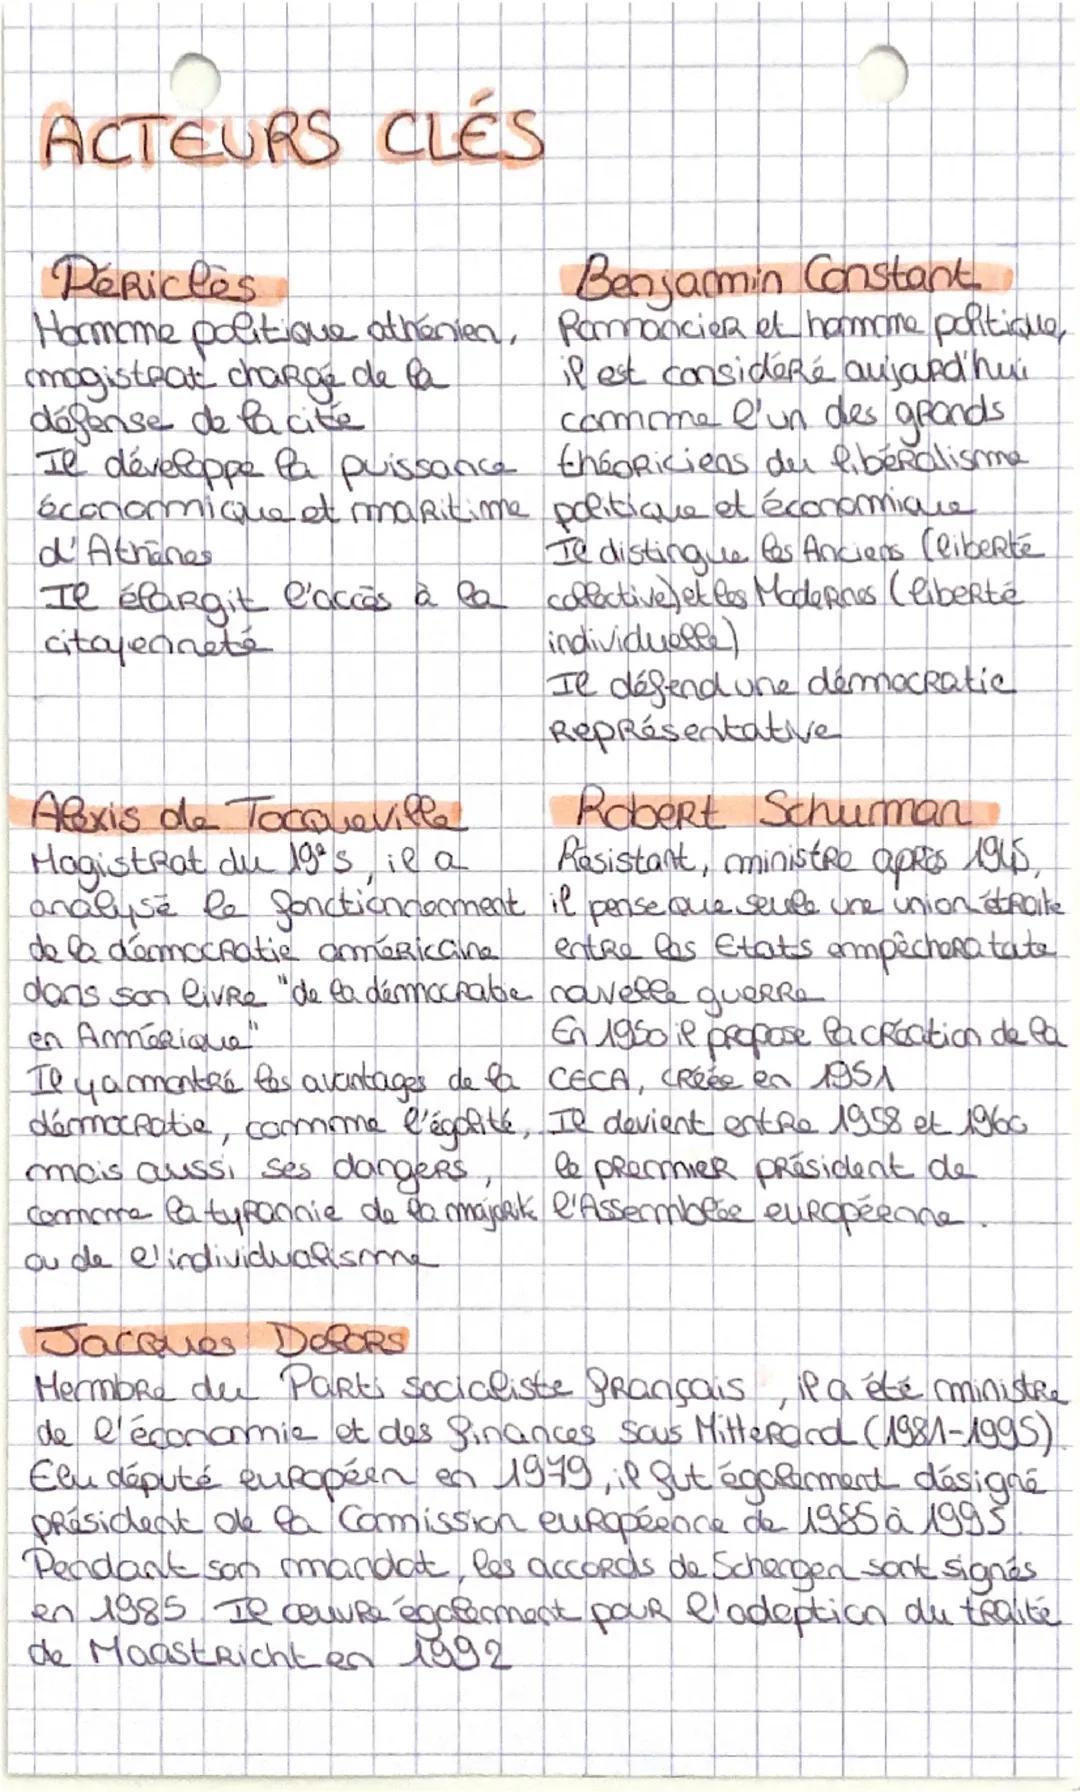 ACTEURS CLÉS
Périclès
Homme politique athénien,
magistrat chargé de la
défense de la cité
Il développe la puissance
économique et maritime
d'Athènes
Il élargit l'accès à la
citoyenneté
Benjamin Constant
Romancier et homme politique,
il est considéré aujourd'hui
comme l'un des grands
théoriciens du libéralisme
politique et économique
Il distingue les Anciens (liberté
collective) et les Modernes (liberté
individuelle)
Il défend une démocratie
représentative
Alexis de Tocqueville
Magistrat du 19e s, il a
analysé le fonctionnement
de la démocratie américaine
dans son livre "de la démocratie
en Amérique"
Il y a montré les avantages de la
démocratie, comme l'égalité,
mais aussi ses dangers,
comme la tyrannie de la majorité
ou de l'individualisme
Robert Schuman
Résistant, ministre après 1945,
il pense que seule une union étroite
entre les Etats empêchera toute
nouvelle guerre
En 1950 il propose la création de la
CECA, créée en 1951
Il devient entre 1958 et 1960
le premier président de
l'Assemblée européenne.
Jacques Delors
Membre du Parti socialiste français, il a été ministre
de l'économie et des finances sous Mitterand (1981-1995)
Elu député européen en 1979, il fut également désigné
président de la Comission européenne de 1985 à 1995.
Pendant son mandat, les accords de Schergen sont signés
en 1985. Il œuvre également pour l'adoption du traité
de Maastricht en 1992